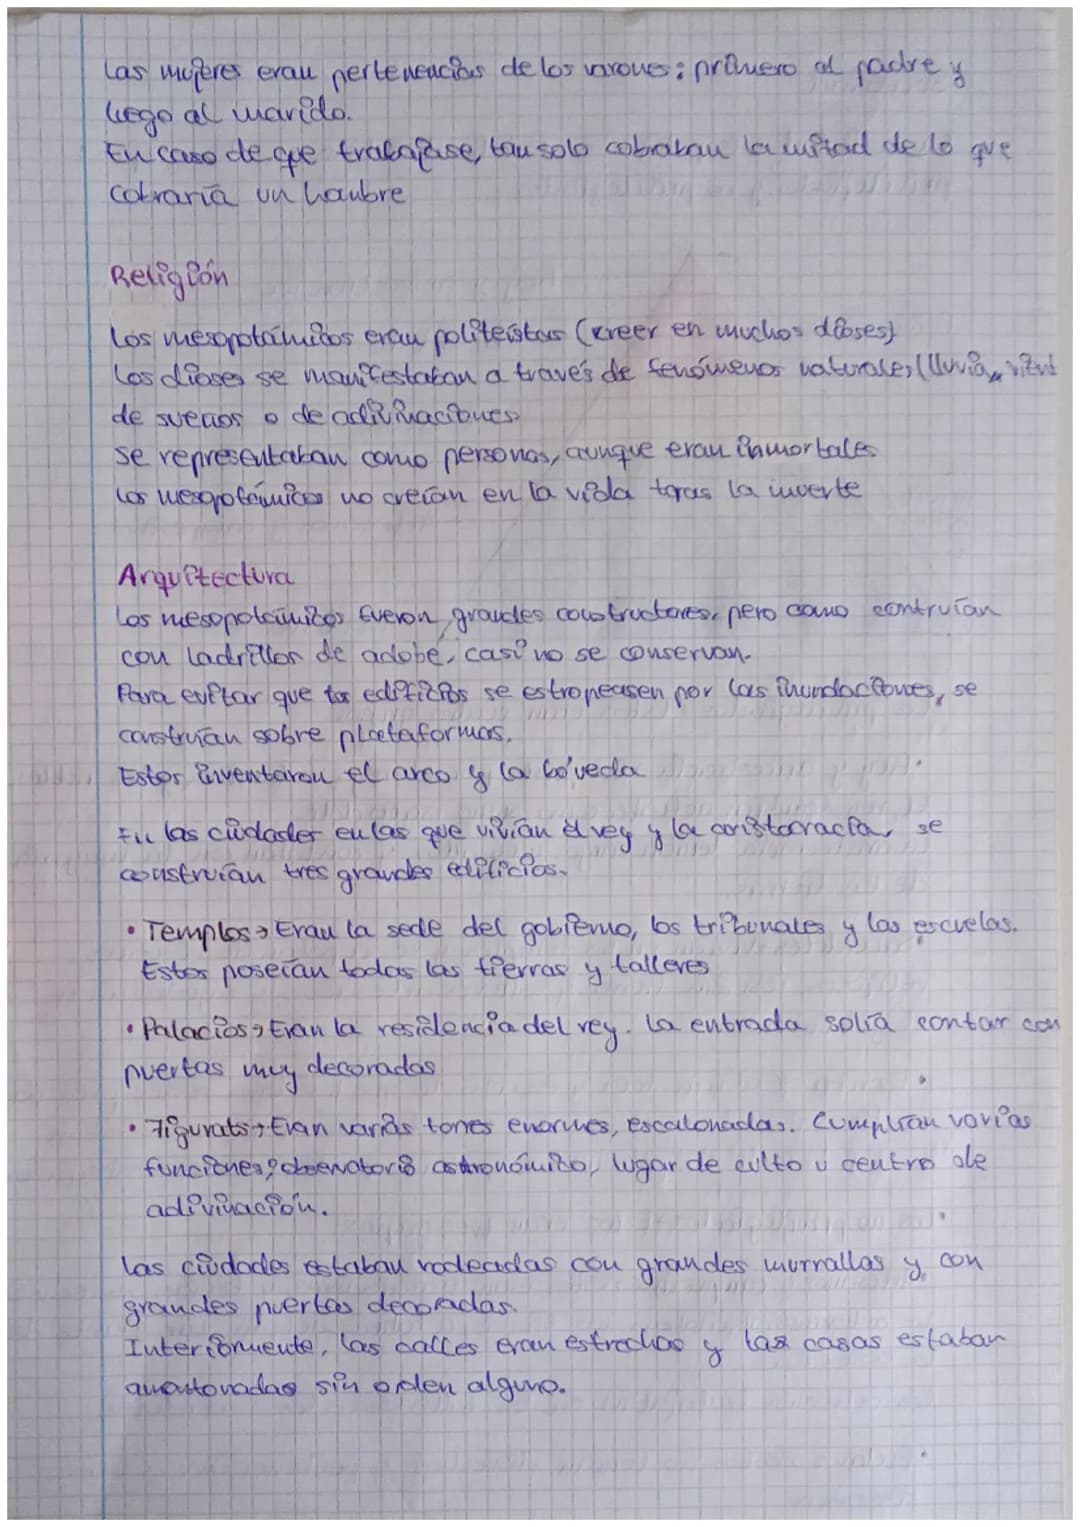 Las mujeres eran pertenencias de los varones: primero al padre y
luego al marido.
En caso de que trabajase, tan solo cobraban la mitad de lo que
cobraría un hombre
Religión
Los mesopotámicos eran politeístas (creer en muchos dioses)
Los dioses se manifestaban a través de fenómenos naturales (lluvia,
de sueños o de adivinaciones
Se representaban como personas, aunque eran inmortales
Los mesopotámicos no creían en la vida toras la muerte
Arquitectura
Los mesopotámicos fueron grandes constructores, pero como contruían
con ladrillos de adobe, casi no se conservan.
Para evitar que los edificios se estropeasen por las inundaciones, se
construían sobre plataformas.
Estos inventaron el arco y la bóveda
En las ciudades en las que vivían el rey y la aristocracia, se
construían tres grandes edificios.
• Templos → Eran la sede del gobierno, los tribunales y las escuelas.
Estos poseían todas las tierras y talleres
• Palacios → Eran la residencia del rey. La entrada solía contar con
puertas muy decoradas
• Zigurats → Eran varias torres enormes, escalonadas. Cumplían varias
funciones: observatorio astronómico, lugar de culto u centro de
adivinación.
Las ciudades estaban rodeadas con grandes murrallas y con
grandes puertas decoradas.
Interiormente, las calles eran estrechas y las casas estaban
amontonadas sin orden alguno.